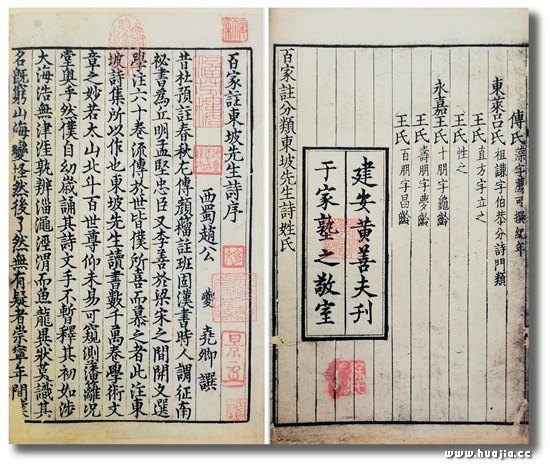 傅氏 藻字薦可撰紀年
東萊呂氏 祖謙字伯恭分詩門類
王氏 直方字立之
王氏 性之
永嘉王氏 十朋字龜齡
王氏 壽朋字夢齡
王氏 百朋字昌齡
建安黃善夫刊
于家塾之敬室
百家註分類東坡先生詩姓氏
百家註東坡先生詩序
西蜀趙公 夔 堯卿 譔
昔杜預註春秋左傳顏籀註班固漢書時人謂征南
秘書為立明孟堅忠臣又李善於梁宋之間開文選
學注六十卷流傳於世皆僕所喜而慕之者此注東
坡詩集所以作也東坡先生讀書數千萬卷學術文
章之妙若太山北斗百世尊仰未易可窺測藩籬况
堂奧乎然僕自幼歲誦其詩文手不暫釋其初如涉
大海浩無津涯孰辨淄澠涇渭而魚龍異狀莫識其
名既窮山海變怪然後了然無有疑者崇寧年間僕
www.huajia.cc